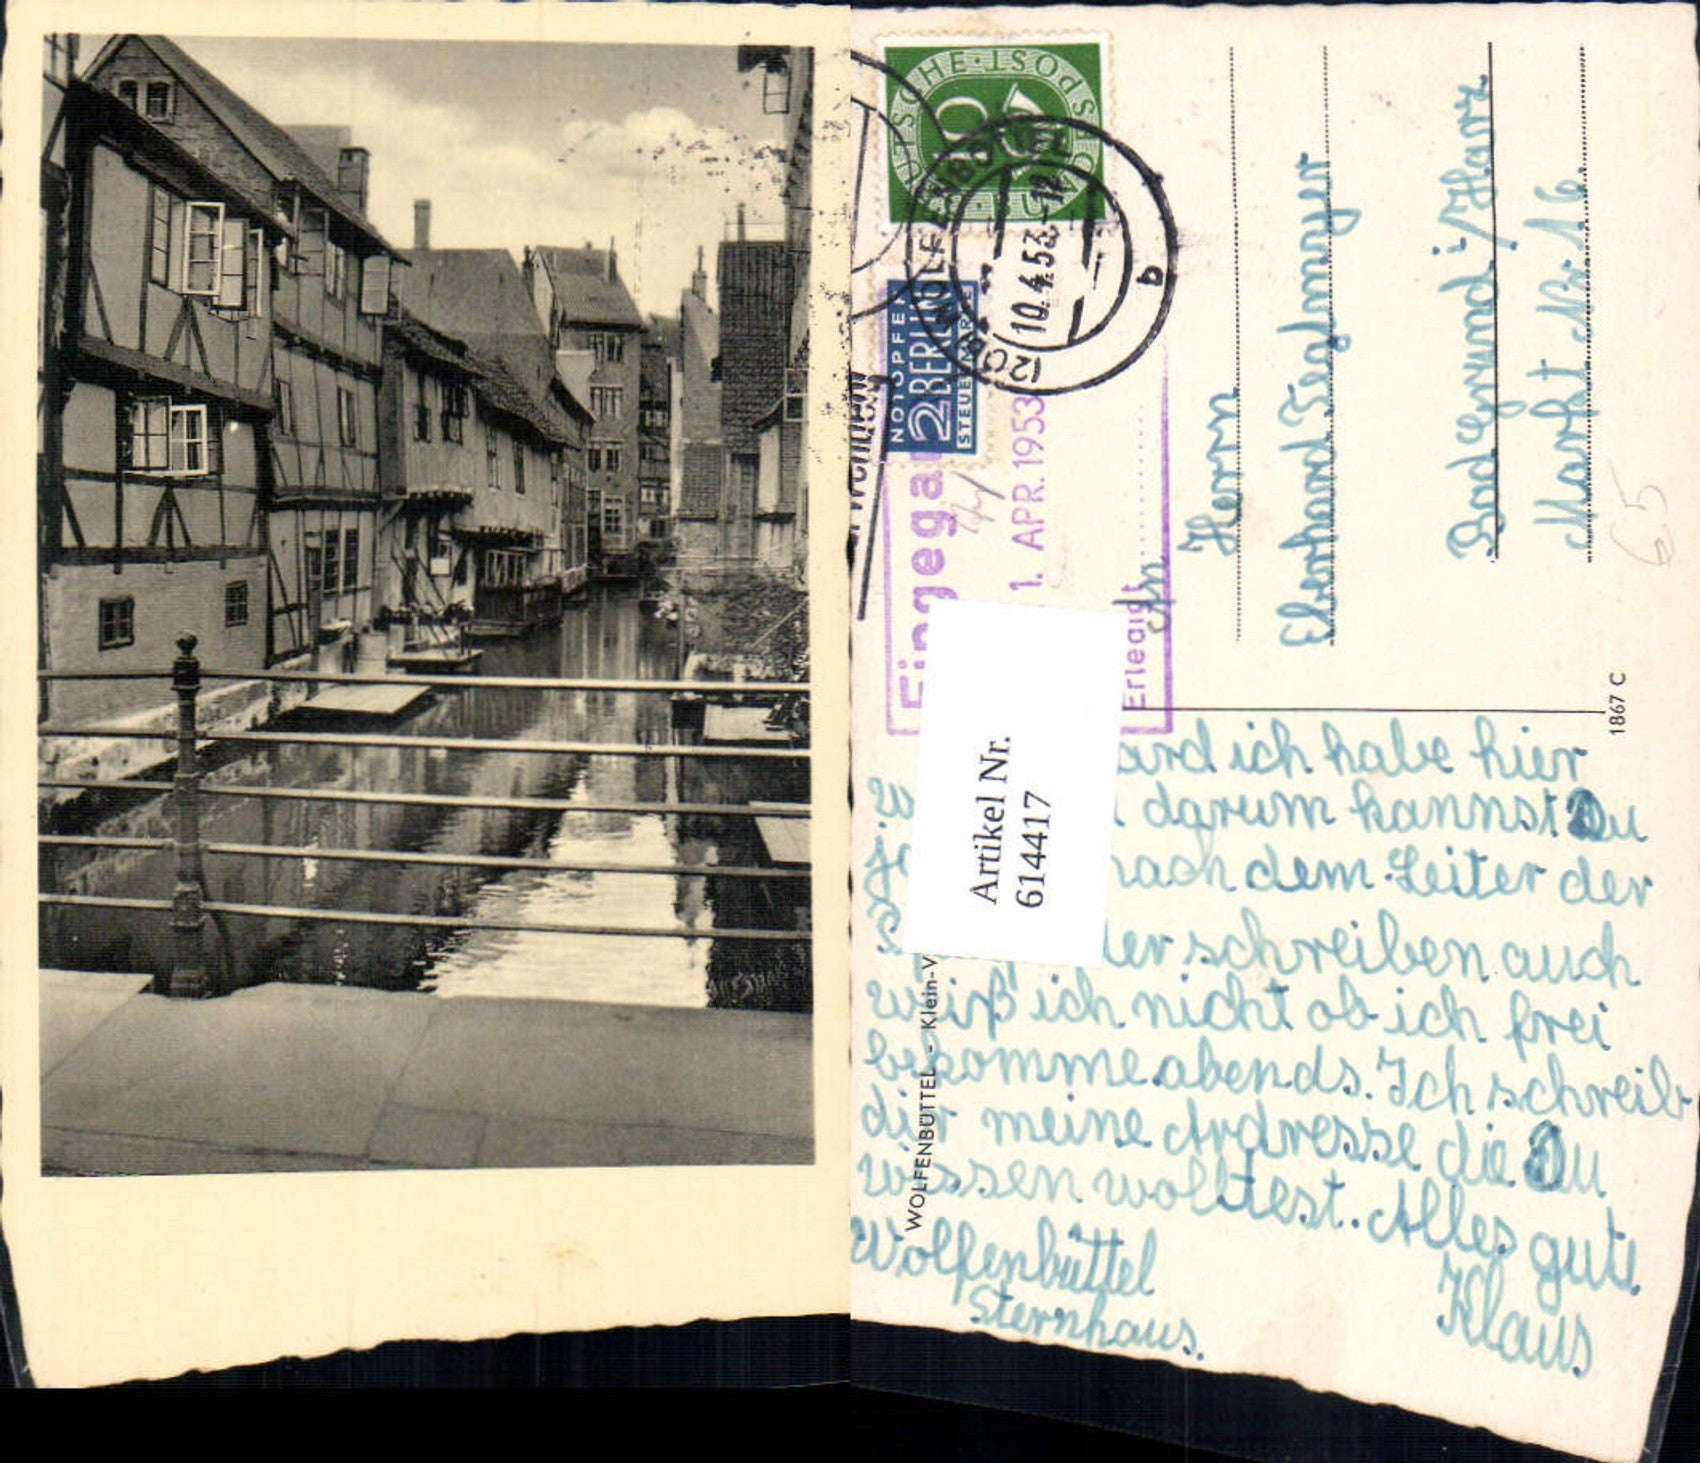 DEUTSCHE · POST
10
WOLFENBÜTTEL
10.4.53.-18
b
(20b)
NOTOPFER
2 BERLIN
STEUERMARKE
1. APR. 1953
Erledigt
An
Herrn
Eberhard Teglmayer
Bad Grund i/Harz
Markt Nr. 16
65
1867 C
Artikel Nr.
614417
WOLFENBÜTTEL - Klein-V
ard ich habe hier
darum kannst Du
nach dem Leiter der
schreiben auch
weiß ich nicht ob ich frei
bekomme abends. Ich schreib
dir meine Ardresse die Du
wissen wolltest. Alles gute
Wolfenbüttel
Sternhaus.
Klaus